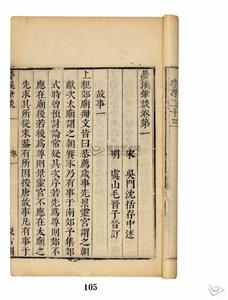 夢溪筆談卷第一
宋 吳門沈括存中述
明 虞山毛晉子晉訂
故事一
上親郊廟冊文皆曰恭薦歲事先景靈宮謂之朝
獻次太廟謂之朝饗末乃有事于南郊予集郊
式時曾預討論常疑其次序若先為尊則郊不
應在廟後若後為尊則景靈宮不應在太廟之
先求其所從來蓋有所因按唐故事凡有事于
105